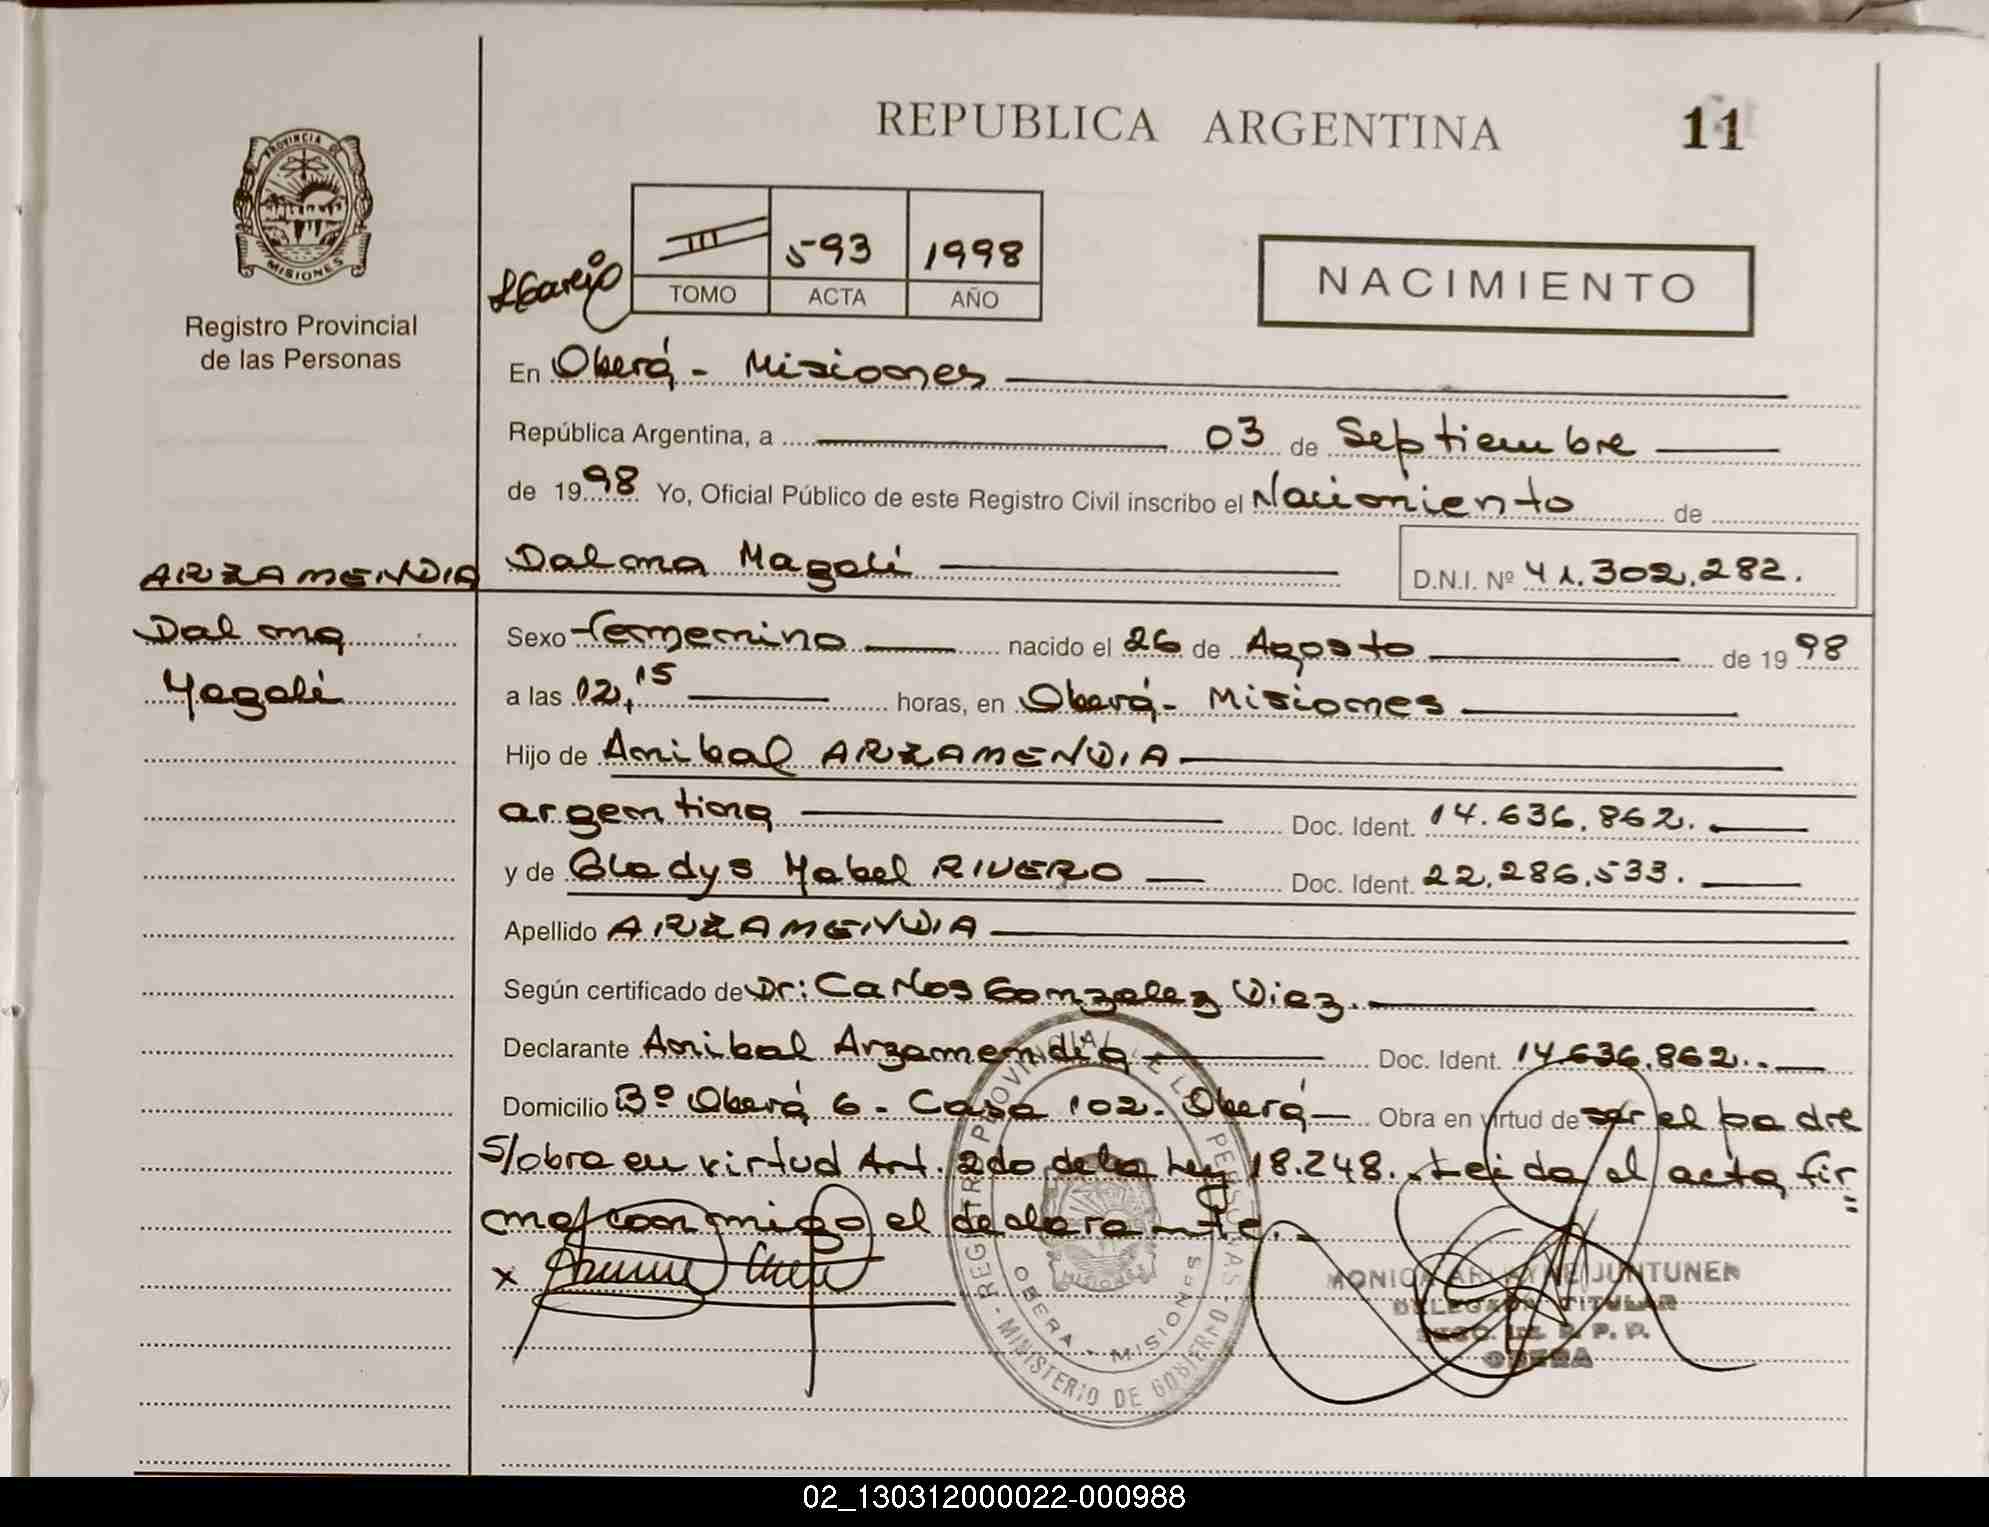 REPUBLICA ARGENTINA
11
PROVINCIA DE
MISIONES
Registro Provincial
de las Personas
593 1998
TOMO ACTA AÑO
NACIMIENTO
En Oberá - Misiones
República Argentina, a 03 de Septiembre
de 1998 Yo, Oficial Público de este Registro Civil inscribo el Nacimiento de
ARZAMENDIA
Dalma Magalí
D.N.I. Nº 41.302.282.
Dalma
Magalí
Sexo femenino nacido el 26 de Agosto de 1998
a las 12,15 horas, en Oberá - Misiones
Hijo de Anibal ARZAMENDIA
argentina Doc. Ident. 14.636.862.
y de Gladys Mabel RIVERO Doc. Ident. 22.286.533.
Apellido ARZAMENDIA
Según certificado de Dr: Carlos Gonzalez Diez.
Declarante Anibal Arzamendia Doc. Ident. 14.636.862.
Domicilio Bº Oberá 6 - Casa 102 - Oberá Obra en virtud de ser el padre
S/obra en virtud Art. 2do de la Ley 18.248. Leida el acta, fir=
ma conmigo el declarante.
x
REGISTRO PROVINCIAL DE LAS PERSONAS - MINISTERIO DE GOBIERNO
OBERA - MISIONES
MISIONES
MONICA JUNTUNEN
DELEGADA TITULAR
R. P. P.
OBERA
02_130312000022-000988